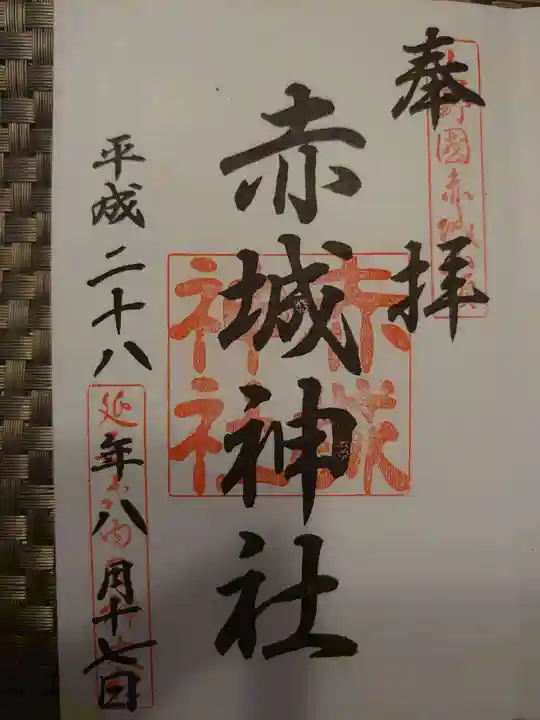 奉拝
赤城神社
赤城神社
平成二十八年八月十七日